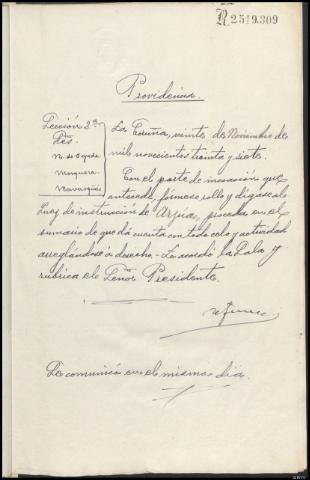 R 2519.309
Providencia.
Sección 2ª
Sres.
La Coruña, veinte de Noviembre de
mil novecientos treinta y siete.
Con el parte de incoación que
antecede, fórmese rollo y dígase al
Juez de instrucción de Arzúa, proceda en el
sumario de que dá cuenta con todo celo y actividad
arreglándose á derecho.- Lo acordó la Sala y
rubrica el Señor Presidente.
Se comunicó en el mismo dia.